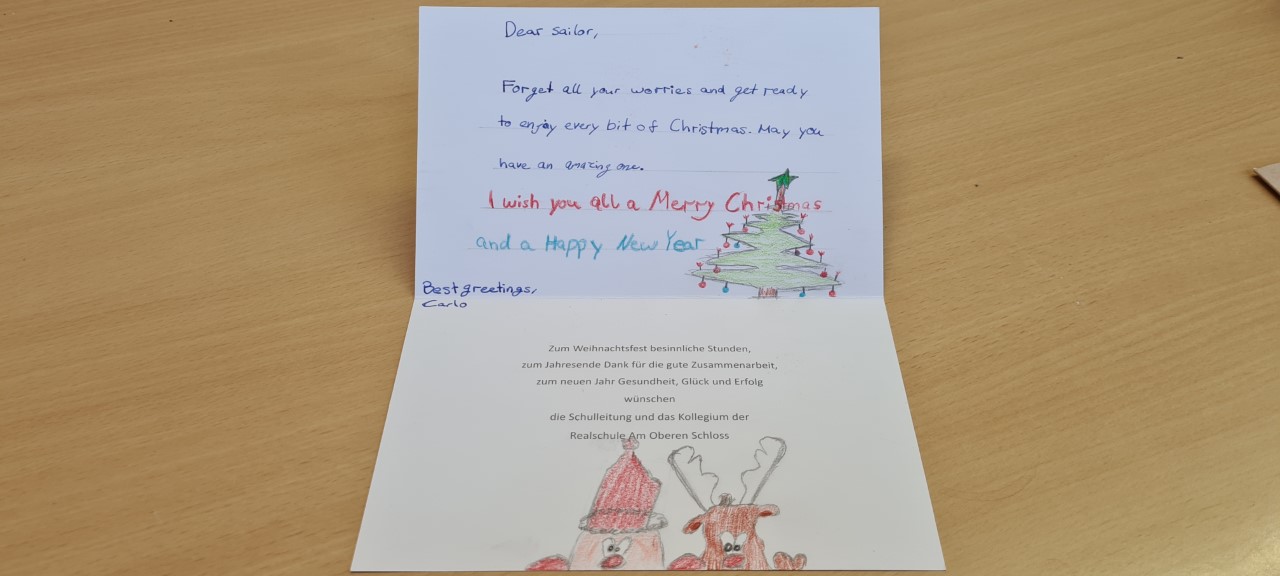 Dear sailor,
Forget all your worries and get ready
to enjoy every bit of Christmas. May you
have an amazing one.
I wish you all a Merry Christmas
and a Happy New Year
Best greetings,
Carlo
Zum Weihnachtsfest besinnliche Stunden,
zum Jahresende Dank für die gute Zusammenarbeit,
zum neuen Jahr Gesundheit, Glück und Erfolg
wünschen
die Schulleitung und das Kollegium der
Realschule Am Oberen Schloss